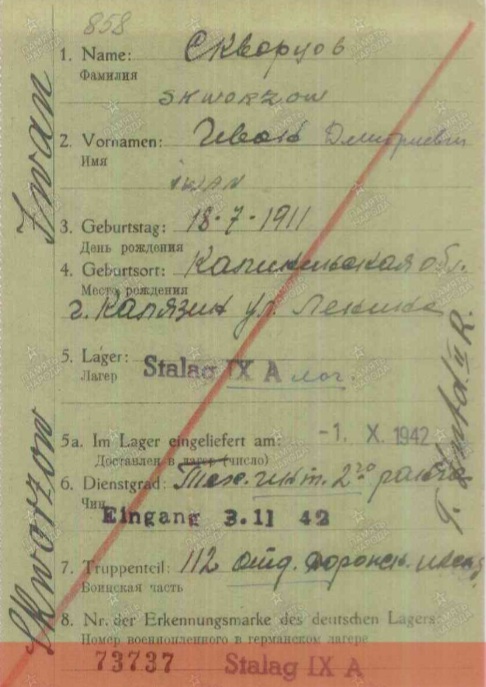 858
1. Name: Скворцов
Фамилия
SKWORZOW
2. Vornamen: Иван Дмитриевич
Имя
IWAN
3. Geburtstag: 18-7-1911
День рождения
4. Geburtsort: Калининская обл.
Место рождения
г. Калязин ул. Ленина
5. Lager: Stalag IX A
Лагерь
5a. Im Lager eingeliefert am: -1. X. 1942
Доставлен в лагерь (число)
6. Dienstgrad: Тех. инт. 2го ранга
Чин
Eingang 3.11 42
7. Truppenteil: 112 отд.
Воинская часть
8. Nr. der Erkennungsmarke des deutschen Lagers:
Номер военнопленного в германском лагере
73737 Stalag IX A
Skworzow Iwan